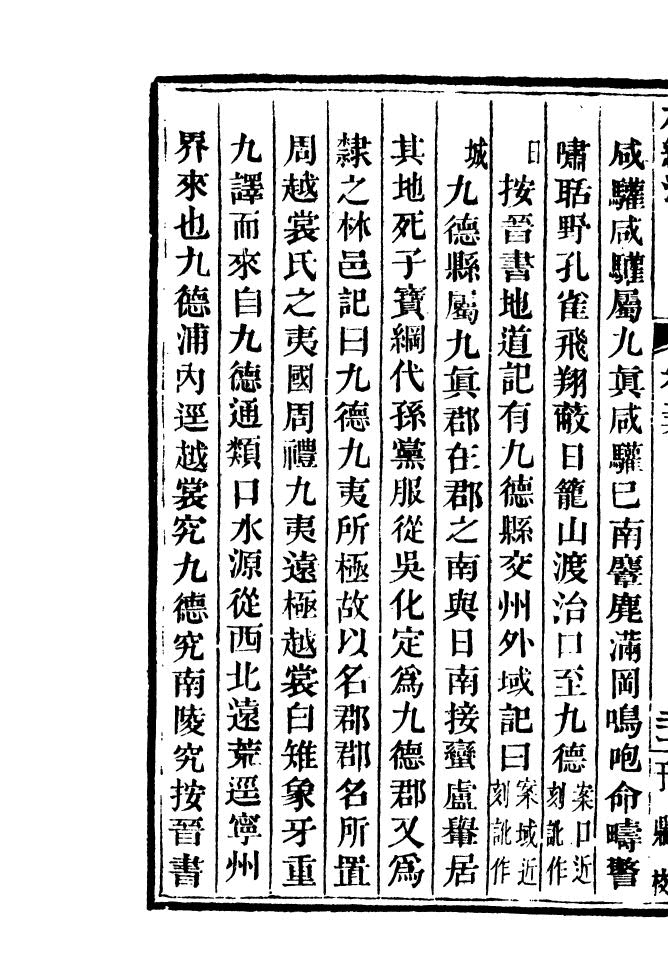 咸驩咸驩屬九眞咸驩已南麞麂滿岡鳴咆命疇警
嘯聒野孔雀飛翔蔽日籠山渡治口至九德案口近刻訛作
日按晉書地道記有九德縣交州外域記曰案域近刻訛作
城九德縣屬九眞郡在郡之南與日南接蠻盧轝居
其地死子寶綱代孫黨服從吳化定爲九德郡又爲
隸之林邑記曰九德九夷所極故以名郡郡名所置
周越裳氏之夷國周禮九夷遠極越裳白雉象牙重
九譯而來自九德通類口水源從西北遠荒逕寧州
界來也九德浦內逕越裳究九德究南陵究按晉書